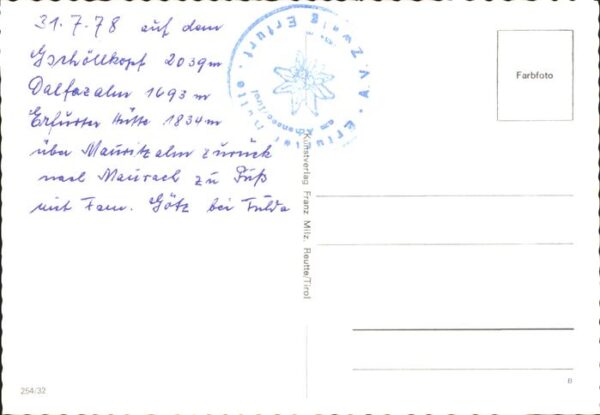 31.7.78 auf dem
Gschöllkopf 2039m
Dalfazalm 1693 m
Erfurter Hütte 1834m
über Mauritzalm zurück
nach Maurach zu Fuß
mit Fam. Götz bei Fulda
A.V. Zweig Erfurt
Erfurter Hütte
Farbfoto
Kunstverlag Franz Milz, Reutte/Tirol
254/32
B